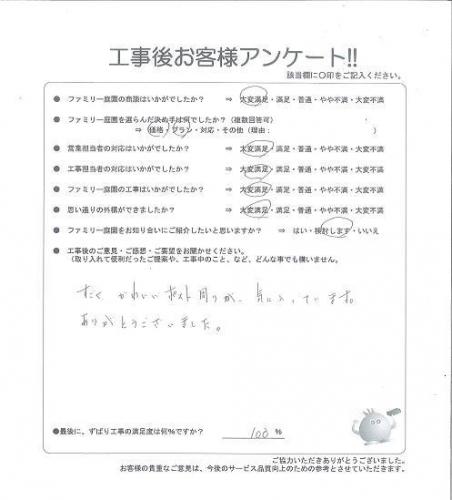 工事後お客様アンケート!!
該当欄に〇印をご記入ください。
● ファミリー庭園の商談はいかがでしたか? ⇒ 大変満足・満足・普通・やや不満・大変不満
● ファミリー庭園を選らんだ決め手は何でしたか?(複数回答可)
⇒ 価格・プラン・対応・その他(理由: )
● 営業担当者の対応はいかがでしたか? ⇒ 大変満足・満足・普通・やや不満・大変不満
● 工事担当者の対応はいかがでしたか? ⇒ 大変満足・満足・普通・やや不満・大変不満
● ファミリー庭園の工事はいかがでしたか? ⇒ 大変満足・満足・普通・やや不満・大変不満
● 思い通りの外構ができましたか? ⇒ 大変満足・満足・普通・やや不満・大変不満
● ファミリー庭園をお知り合いにご紹介したいと思いますか? ⇒ はい・検討します・いいえ
● 工事後のご意見・ご感想・ご要望をお聞かせください。
(取り入れて便利だったご提案や、工事中のこと、など、どんな事でも構いません。
かわいいポスト周りが、気に入っています。
ありがとうございました。
●最後に、ずばり工事の満足度は何%ですか? 100 %
ご協力いただきありがとうございました。
お客様の貴重なご意見は、今後のサービス品質向上のための参考とさせていただきます。